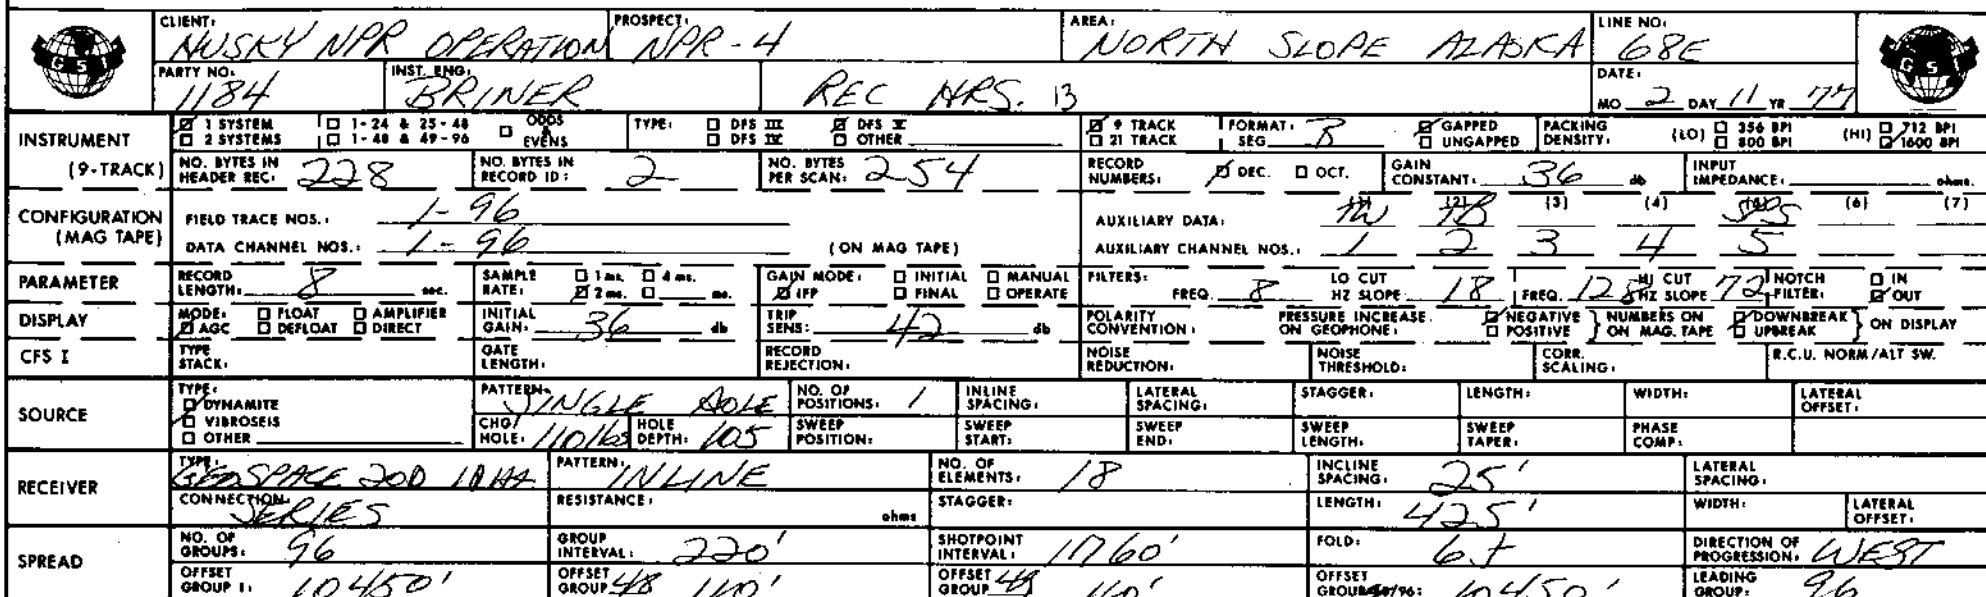 CLIENT: HUSKY NPR OPERATION PROSPECT: NPR-4 AREA: NORTH SLOPE ALASKA LINE NO: 68E
GSI GSI
PARTY NO: 1184 INST. ENG: BRINER REC HRS. 13 DATE: MO 2 DAY 11 YR 77
INSTRUMENT ☑ 1 SYSTEM ☐ 1-24 & 25-48 ☐ ODDS & EVENS TYPE: ☐ DFS III ☑ DFS V ☑ 9 TRACK FORMAT: SEG B ☑ GAPPED PACKING DENSITY: (LO) ☐ 356 BPI (HI) ☐ 712 BPI
☐ 2 SYSTEMS ☐ 1-48 & 49-96 ☐ DFS IV ☐ OTHER ☐ 21 TRACK ☐ UNGAPPED ☐ 800 BPI ☑ 1600 BPI
(9-TRACK) NO. BYTES IN HEADER REC: 228 NO. BYTES IN RECORD ID: 2 NO. BYTES PER SCAN: 254 RECORD NUMBERS: ☑ DEC. ☐ OCT. GAIN CONSTANT: 36 db INPUT IMPEDANCE: ohms.
CONFIGURATION (MAG TAPE) FIELD TRACE NOS.: 1-96 AUXILIARY DATA: (1) TW (2) TB (3) (4) (5) (6) (7)
DATA CHANNEL NOS.: 1-96 (ON MAG TAPE) AUXILIARY CHANNEL NOS.: 1 2 3 4 5
PARAMETER RECORD LENGTH: 8 sec. SAMPLE RATE: ☐ 1 ms. ☐ 4 ms. ☑ 2 ms. ☐ ms. GAIN MODE: ☐ INITIAL ☐ MANUAL ☑ IFP ☐ FINAL ☐ OPERATE FILTERS: FREQ. 8 LO CUT HZ SLOPE 18 FREQ. 128 HI CUT HZ SLOPE 72 NOTCH FILTER: ☐ IN ☑ OUT
DISPLAY MODE: ☐ FLOAT ☐ AMPLIFIER ☑ AGC ☐ DEFLOAT ☐ DIRECT INITIAL GAIN: 36 db TRIP SENS: 42 db POLARITY CONVENTION: PRESSURE INCREASE ON GEOPHONE: ☑ NEGATIVE ☐ POSITIVE } NUMBERS ON ON MAG. TAPE ☑ DOWNBREAK ☐ UPBREAK } ON DISPLAY
CFS I TYPE STACK: GATE LENGTH: RECORD REJECTION: NOISE REDUCTION: NOISE THRESHOLD: CORR. SCALING: R.C.U. NORM/ALT SW.
SOURCE TYPE: ☑ DYNAMITE ☐ VIBROSEIS ☐ OTHER PATTERN: SINGLE HOLE NO. OF POSITIONS: 1 INLINE SPACING: LATERAL SPACING: STAGGER: LENGTH: WIDTH: LATERAL OFFSET:
CHG/HOLE: 110 lbs HOLE DEPTH: 105 SWEEP POSITION: SWEEP START: SWEEP END: SWEEP LENGTH: SWEEP TAPER: PHASE COMP:
RECEIVER TYPE: GEOSPACE 20D 10 Hz PATTERN: INLINE NO. OF ELEMENTS: 18 INCLINE SPACING: 25' LATERAL SPACING:
CONNECTION: SERIES RESISTANCE: ohms STAGGER: LENGTH: 425' WIDTH: LATERAL OFFSET:
SPREAD NO. OF GROUPS: 96 GROUP INTERVAL: 220' SHOTPOINT INTERVAL: 1760' FOLD: 6+ DIRECTION OF PROGRESSION: WEST
OFFSET GROUP 1: 10450' OFFSET GROUP 48 110' OFFSET GROUP 49 110' OFFSET GROUP 96: 10450' LEADING GROUP: 96